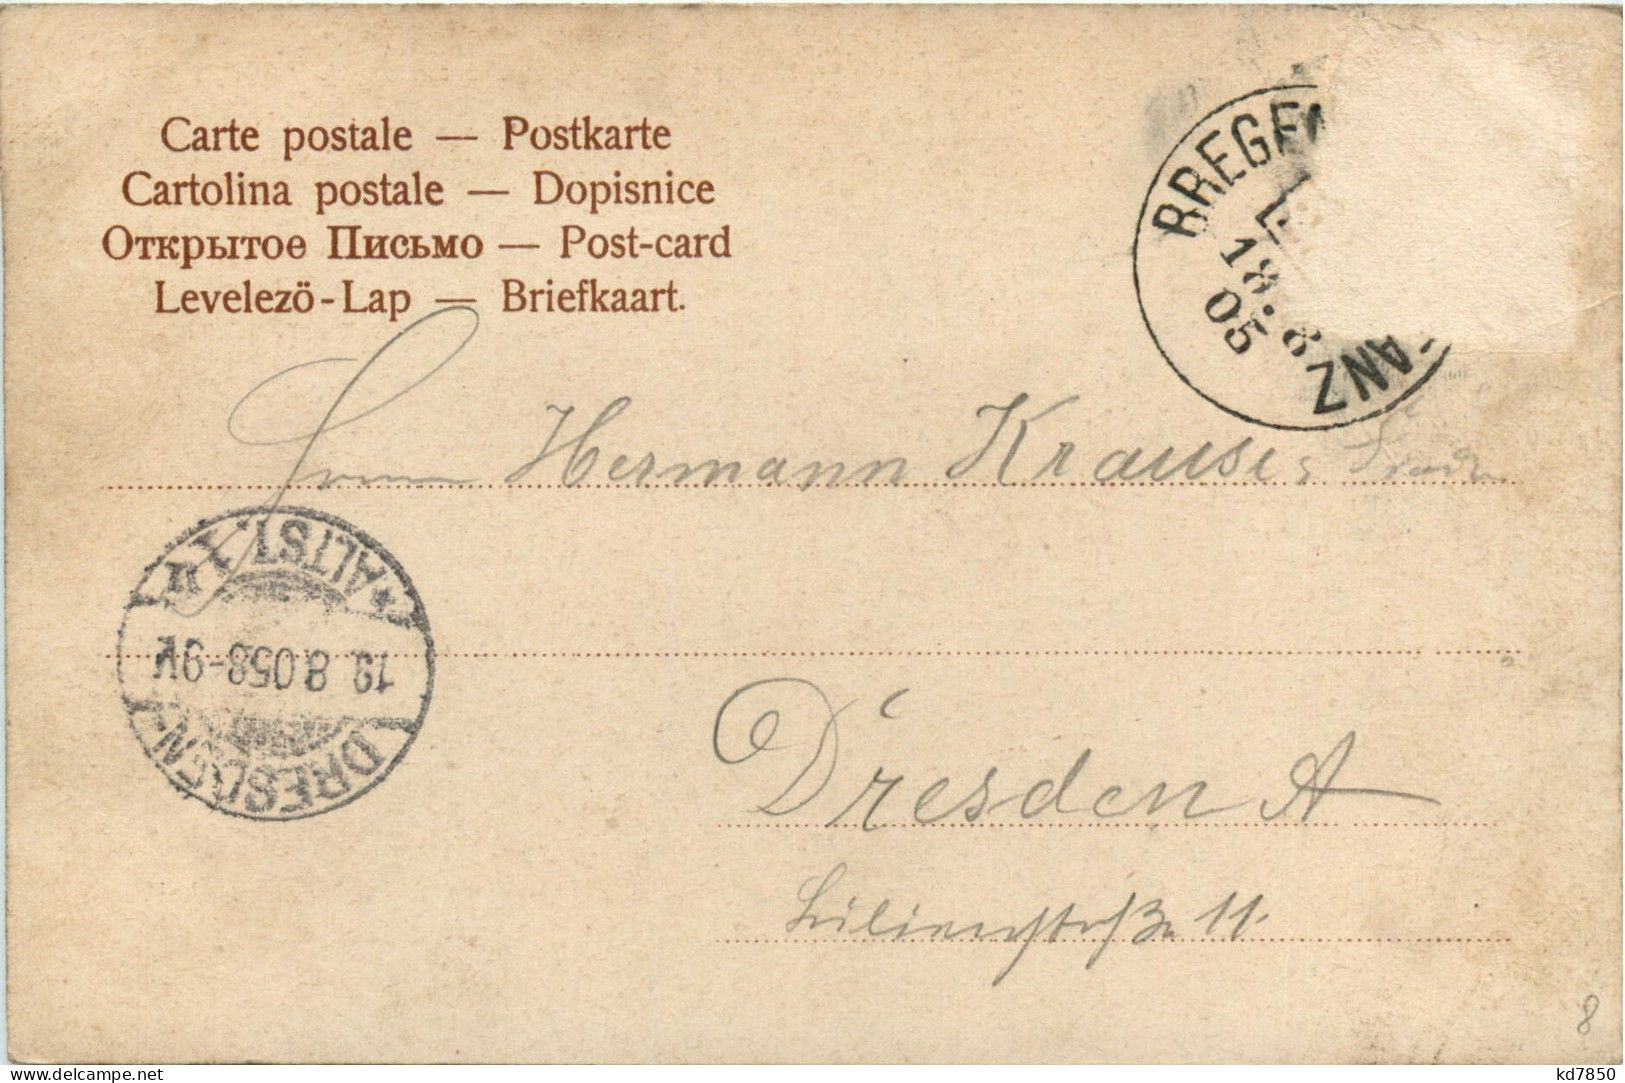 Carte postale — Postkarte
Cartolina postale — Dopisnice
Открытое Письмо — Post-card
Levelezö-Lap — Briefkaart.
BREGEN
18.8
05
ANZ
Herrn Hermann Krause,
*ALTST. X u
19.8.05 8-9V
DRESDEN-
Dresden A
Lilienstraße 11.
8
www.delcampe.net
kd7850